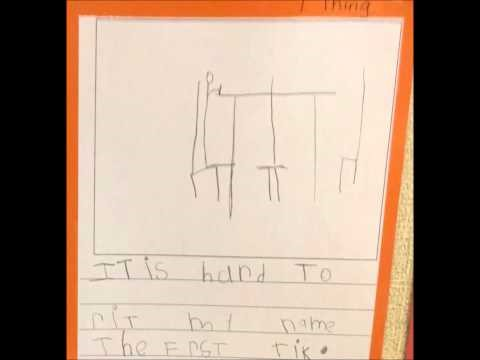 Thing
IT is hard To
rit my name
The FrST Tik.